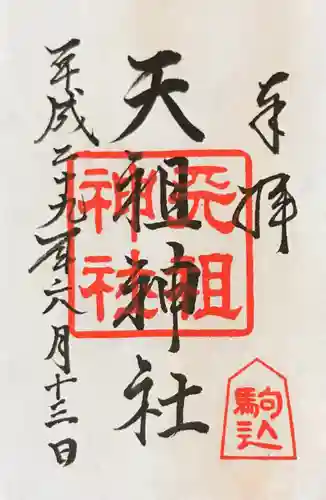 奉拝
天祖神社
天祖神社
駒込
平成二十九年六月十三日